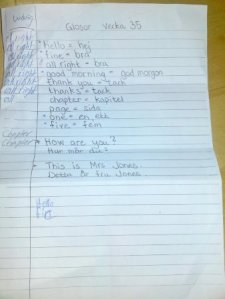 Ludvig
Glosor vecka 35
hello = hej
fine = bra
all right = bra
good morning = god morgon
thank you = tack
thanks = tack
chapter = kapitel
page = sida
one = en ett
five = fem
Chapter
Chapter
How are you?
Hur mår du?
This is Mrs Jones.
Detta är fru Jones.